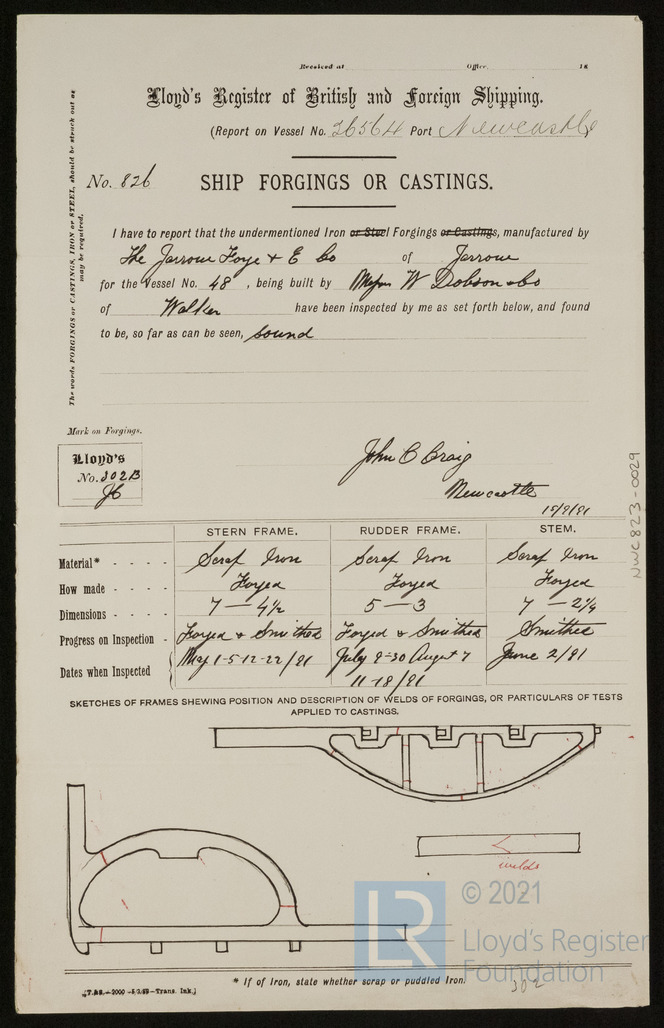 Received at Office, 18
Lloyd's Register of British and Foreign Shipping.
(Report on Vessel No. 36564 Port Newcastle
No. 826
SHIP FORGINGS OR CASTINGS.
The words FORGINGS or CASTINGS, IRON or STEEL, should be struck out as
may be required.
I have to report that the undermentioned Iron or Steel Forgings or Castings, manufactured by
The Jarrow Forge & E Co of Jarrow
for the Vessel No. 48, being built by Messrs W Dobson & Co
of Walker have been inspected by me as set forth below, and found
to be, so far as can be seen, sound
Mark on Forgings.
Lloyd's
No. 302B
JC
John C Craig
Newcastle
15/9/91
NWC823-0029
STERN FRAME. RUDDER FRAME. STEM.
Material* - - - - Scrap Iron Scrap Iron Scrap Iron
How made - - - - Forged Forged Forged
Dimensions - - - - 7 — 4½ 5 — 3 7 — 2¼
Progress on Inspection - Forged & Smithed Forged & Smithed Smithed
Dates when Inspected May 1-5-12-22/91 July 9-30 August 7 June 2/91
11-18/91
SKETCHES OF FRAMES SHEWING POSITION AND DESCRIPTION OF WELDS OF FORGINGS, OR PARTICULARS OF TESTS
APPLIED TO CASTINGS.
welds
LR
© 2021
Lloyd's Register
Foundation
* If of Iron, state whether scrap or puddled Iron.
302
Trans. Ink.